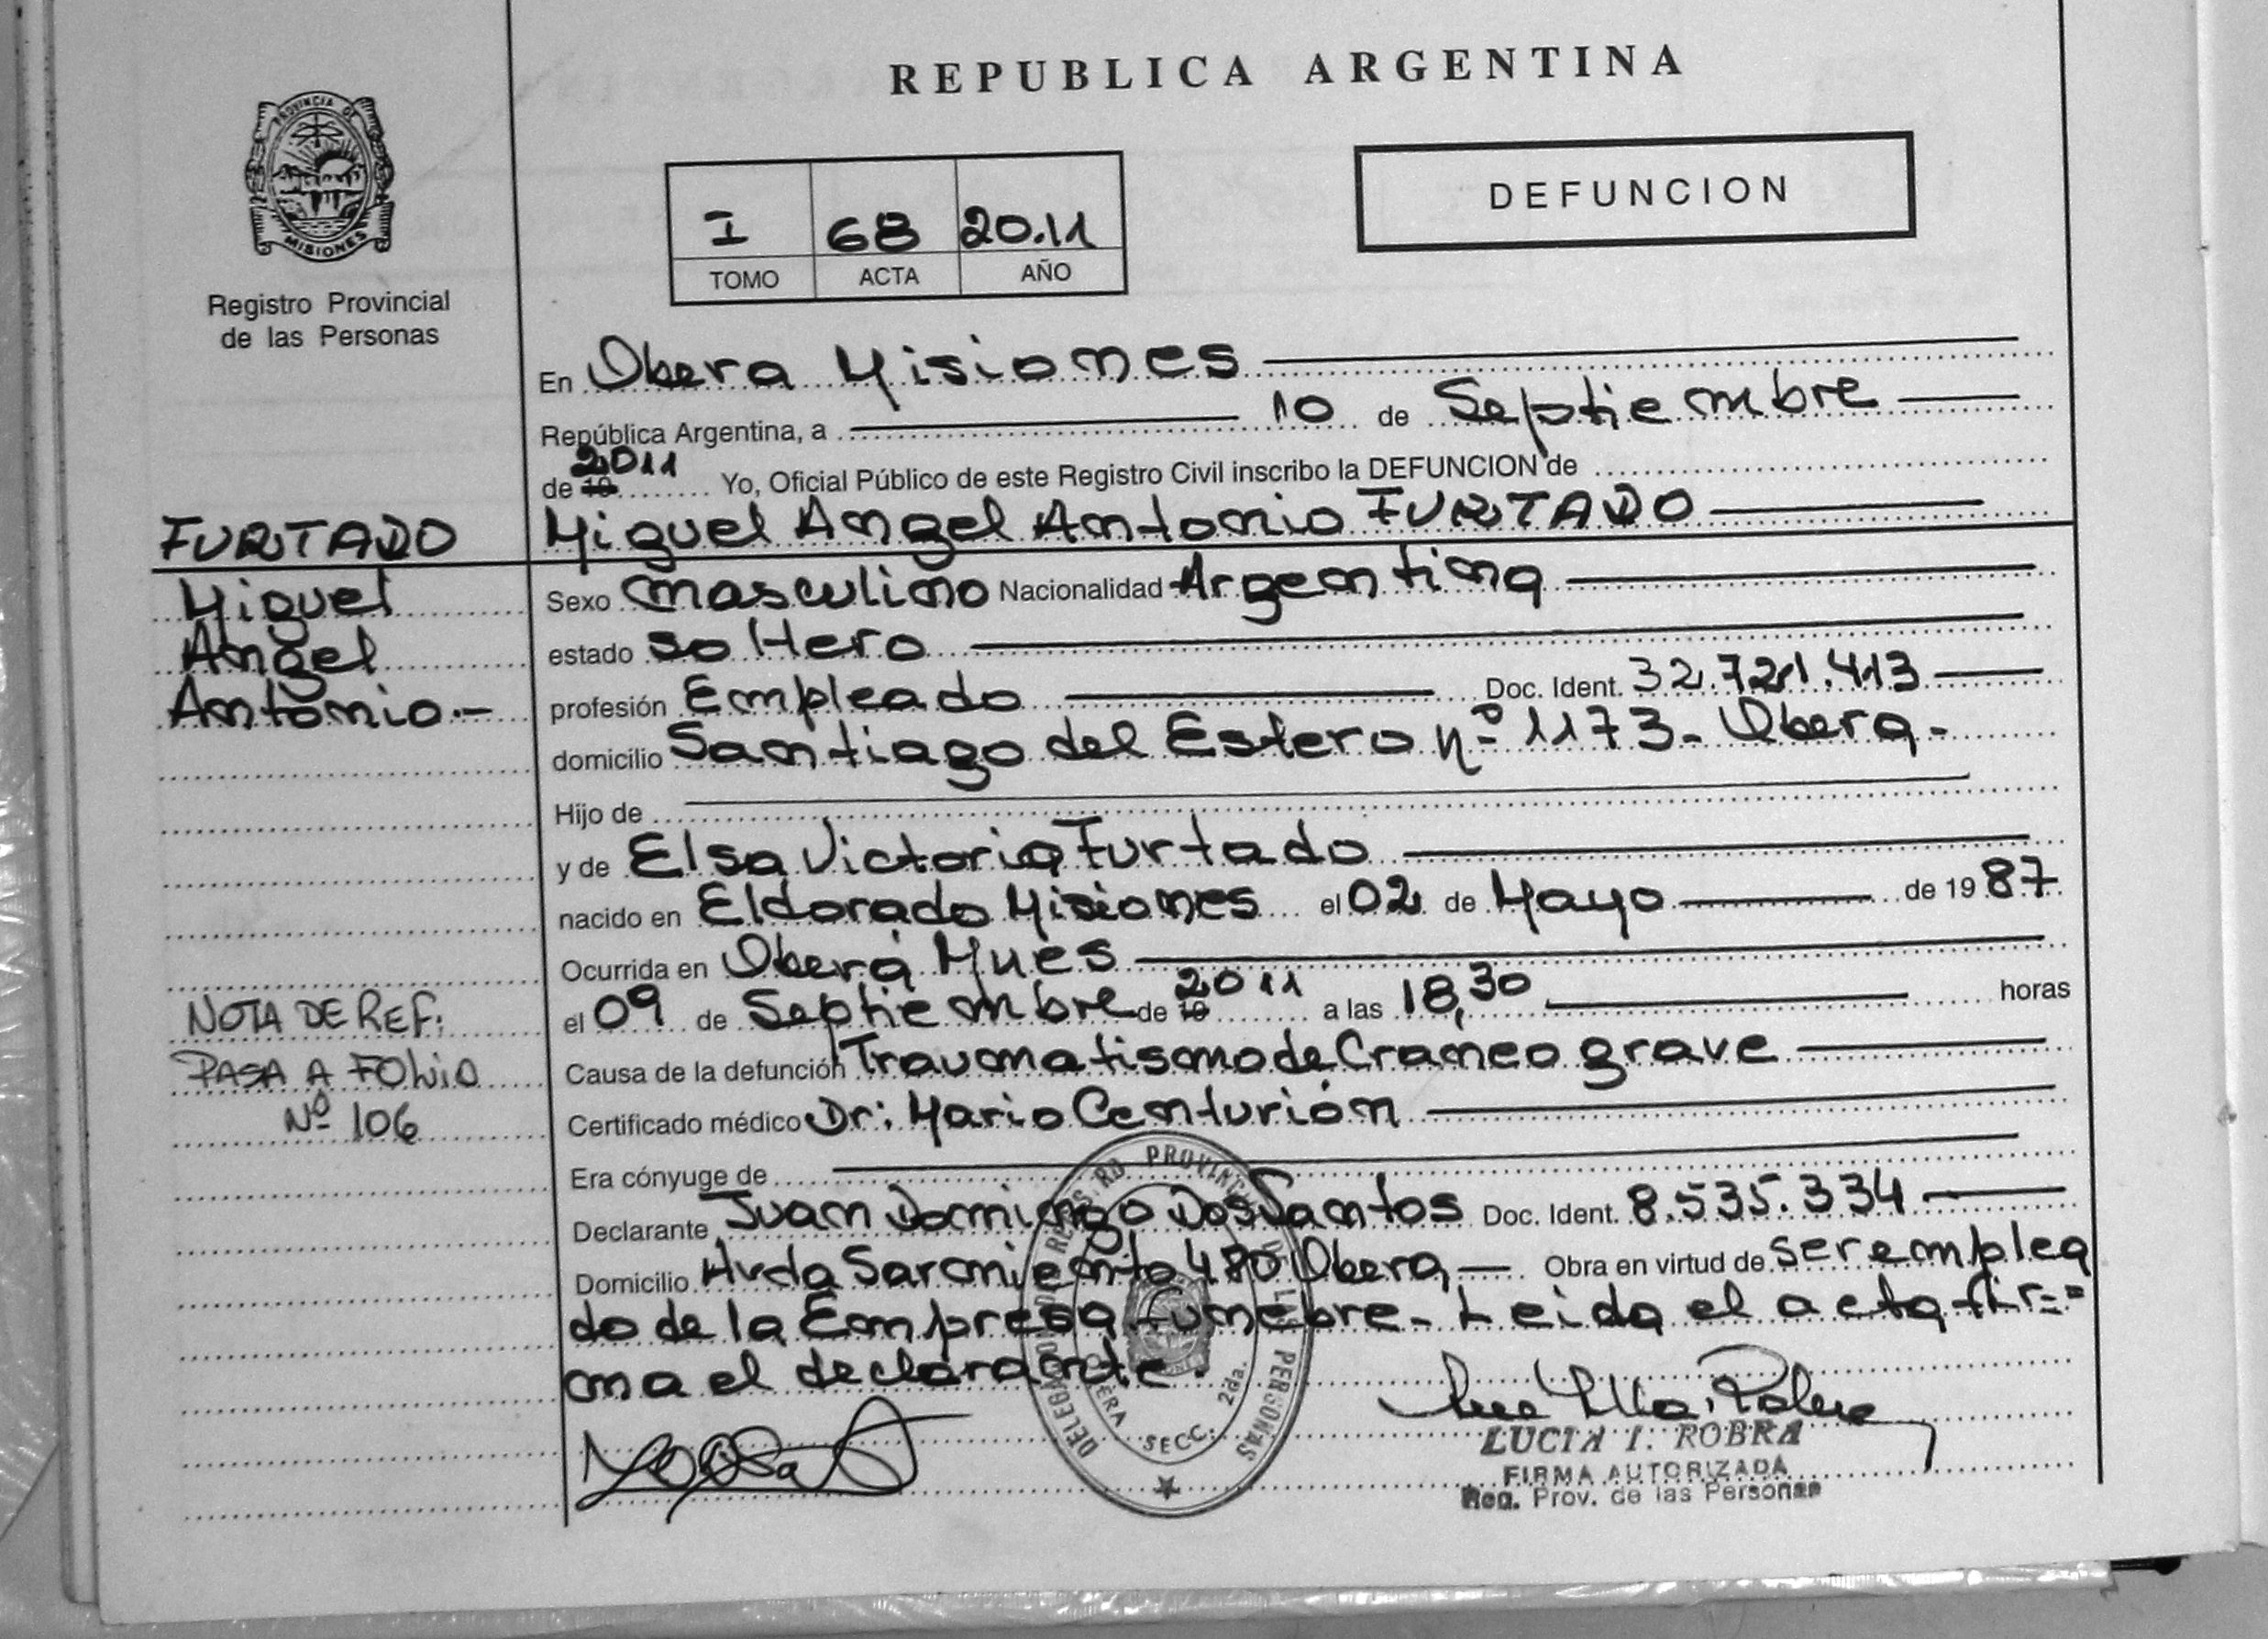 REPUBLICA ARGENTINA
PROVINCIA DE
MISIONES
Registro Provincial
de las Personas
DEFUNCION
I 68 20.11
TOMO ACTA AÑO
En Obera Misiones
República Argentina, a 10 de Septiembre
de 19 2011 Yo, Oficial Público de este Registro Civil inscribo la DEFUNCION de
Miguel Angel Antonio FURTADO
FURTADO
Miguel
Angel
Antonio.-
Sexo masculino Nacionalidad Argentina
estado soltero
profesión Empleado Doc. Ident. 32.721.413
domicilio Santiago del Estero nº 1173- Obera-
Hijo de
y de Elsa Victoria Furtado
nacido en Eldorado Misiones el 02 de Mayo de 19 87
Ocurrida en Oberá Mnes
el 09 de Septiembre de 19 2011 a las 18,30 horas
Causa de la defunción Traumatismo de Craneo grave
Certificado médico Dr: Mario Centurión
Era cónyuge de
Declarante Juan Domingo Dos Santos Doc. Ident. 8.535.334
Domicilio Avda Sarmiento 480 Obera, Obra en virtud de ser emplea
do de la Empresa funebre- Leida el acta fir=
ma el declarante.
NOTA DE REF:
PASA A FOLIO
Nº 106
PERSONAS
SECC. 2da.
LUCIA I. ROBRA
FIRMA AUTORIZADA
Reg. Prov. de las Personas